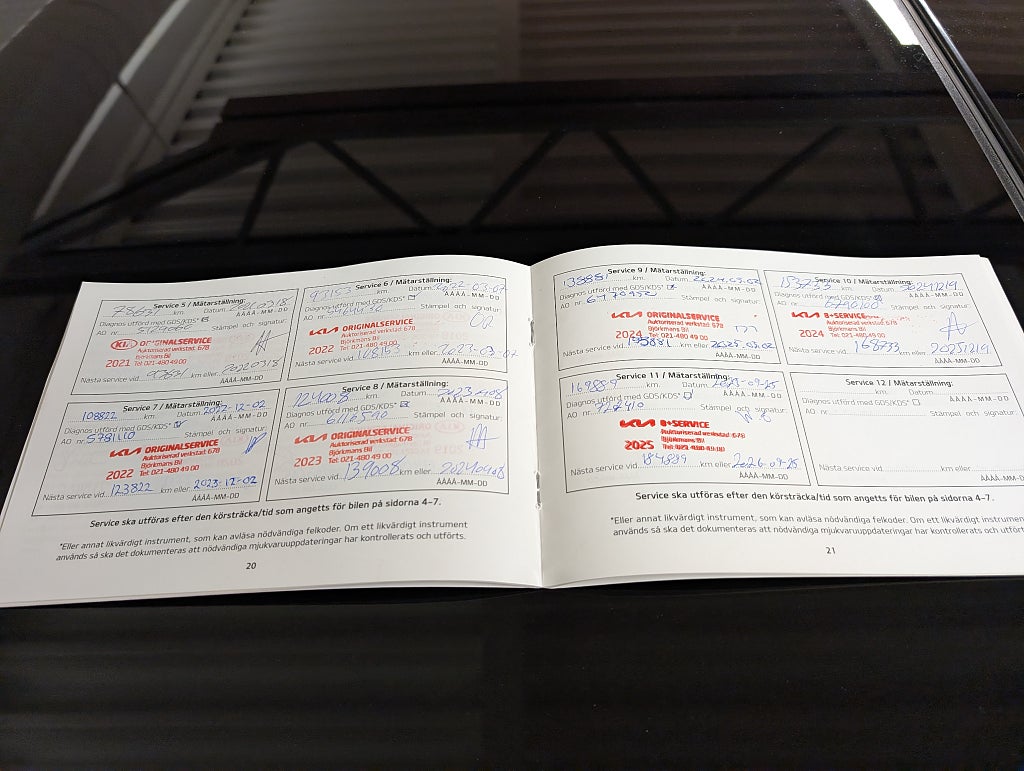 Service 5 / Mätarställning:
km. Datum
Diagnos utförd med GDS/KDS* AAAA-MM-DD
AO nr. Stämpel och signatur:
KIA ORIGINALSERVICE
Auktoriserad verkstad: 678
Björkmans Bil
2021 Tel: 021-480 49 00
Nästa service vid km eller
AAAA-MM-DD
Service 6 / Mätarställning:
km. Datum 2022-03-07
Diagnos utförd med GDS/KDS* ÅÅÅÅ-MM-DD
AO nr. Stämpel och signatur:
KIA ORIGINALSERVICE
Auktoriserad verkstad: 678
Björkmans Bil
2022 Tel: 021-480 49 00
Nästa service vid 108163 km eller 2023-03-07
ÅÅÅÅ-MM-DD
Service 7 / Mätarställning:
108822 km. Datum 2022-12-02
Diagnos utförd med GDS/KDS* ÅÅÅÅ-MM-DD
AO nr. 5781110 Stämpel och signatur:
KIA ORIGINALSERVICE
Auktoriserad verkstad: 678
Björkmans Bil
2022 Tel: 021-480 49 00
Nästa service vid 123822 km eller 2023-12-02
ÅÅÅÅ-MM-DD
Service 8 / Mätarställning:
124008 km. Datum
Diagnos utförd med GDS/KDS* ÅÅÅÅ-MM-DD
AO nr. Stämpel och signatur:
KIA ORIGINALSERVICE
Auktoriserad verkstad: 678
Björkmans Bil
2023 Tel: 021-480 49 00
Nästa service vid 139008 km eller 20240408
ÅÅÅÅ-MM-DD
Service ska utföras efter den körsträcka/tid som angetts för bilen på sidorna 4–7.
*Eller annat likvärdigt instrument, som kan avläsa nödvändiga felkoder. Om ett likvärdigt instrument
används så ska det dokumenteras att nödvändiga mjukvaruuppdateringar har kontrollerats och utförts.
20
Service 9 / Mätarställning:
138881 km. Datum 2024.03.02
Diagnos utförd med GDS/KDS* ÅÅÅÅ-MM-DD
AO nr. Stämpel och signatur:
KIA ORIGINALSERVICE
Auktoriserad verkstad: 678
Björkmans Bil
2024 Tel: 021-480 49 00
Nästa service vid km eller 2025.03.02
ÅÅÅÅ-MM-DD
Service 10 / Mätarställning:
153733 km. Datum 20241219
Diagnos utförd med GDS/KDS* ÅÅÅÅ-MM-DD
AO nr. Stämpel och signatur:
KIA 8+SERVICE
Auktoriserad verkstad: 678
Björkmans Bil
2024 Tel: 021-480 49 00
Nästa service vid 168733 km eller 20251219
ÅÅÅÅ-MM-DD
Service 11 / Mätarställning:
169889 km. Datum 2025-09-25
Diagnos utförd med GDS/KDS* ÅÅÅÅ-MM-DD
AO nr. Stämpel och signatur:
KIA 8+SERVICE
Auktoriserad verkstad: 678
Björkmans Bil
2025 Tel: 021-480 49 00
Nästa service vid 184889 km eller 2026-09-25
ÅÅÅÅ-MM-DD
Service 12 / Mätarställning:
km. Datum
Diagnos utförd med GDS/KDS* ÅÅÅÅ-MM-DD
AO nr. Stämpel och signatur:
Nästa service vid km eller
ÅÅÅÅ-MM-DD
Service ska utföras efter den körsträcka/tid som angetts för bilen på sidorna 4–7.
*Eller annat likvärdigt instrument, som kan avläsa nödvändiga felkoder. Om ett likvärdigt instrumen
används så ska det dokumenteras att nödvändiga mjukvaruuppdateringar har kontrollerats och utförts.
21